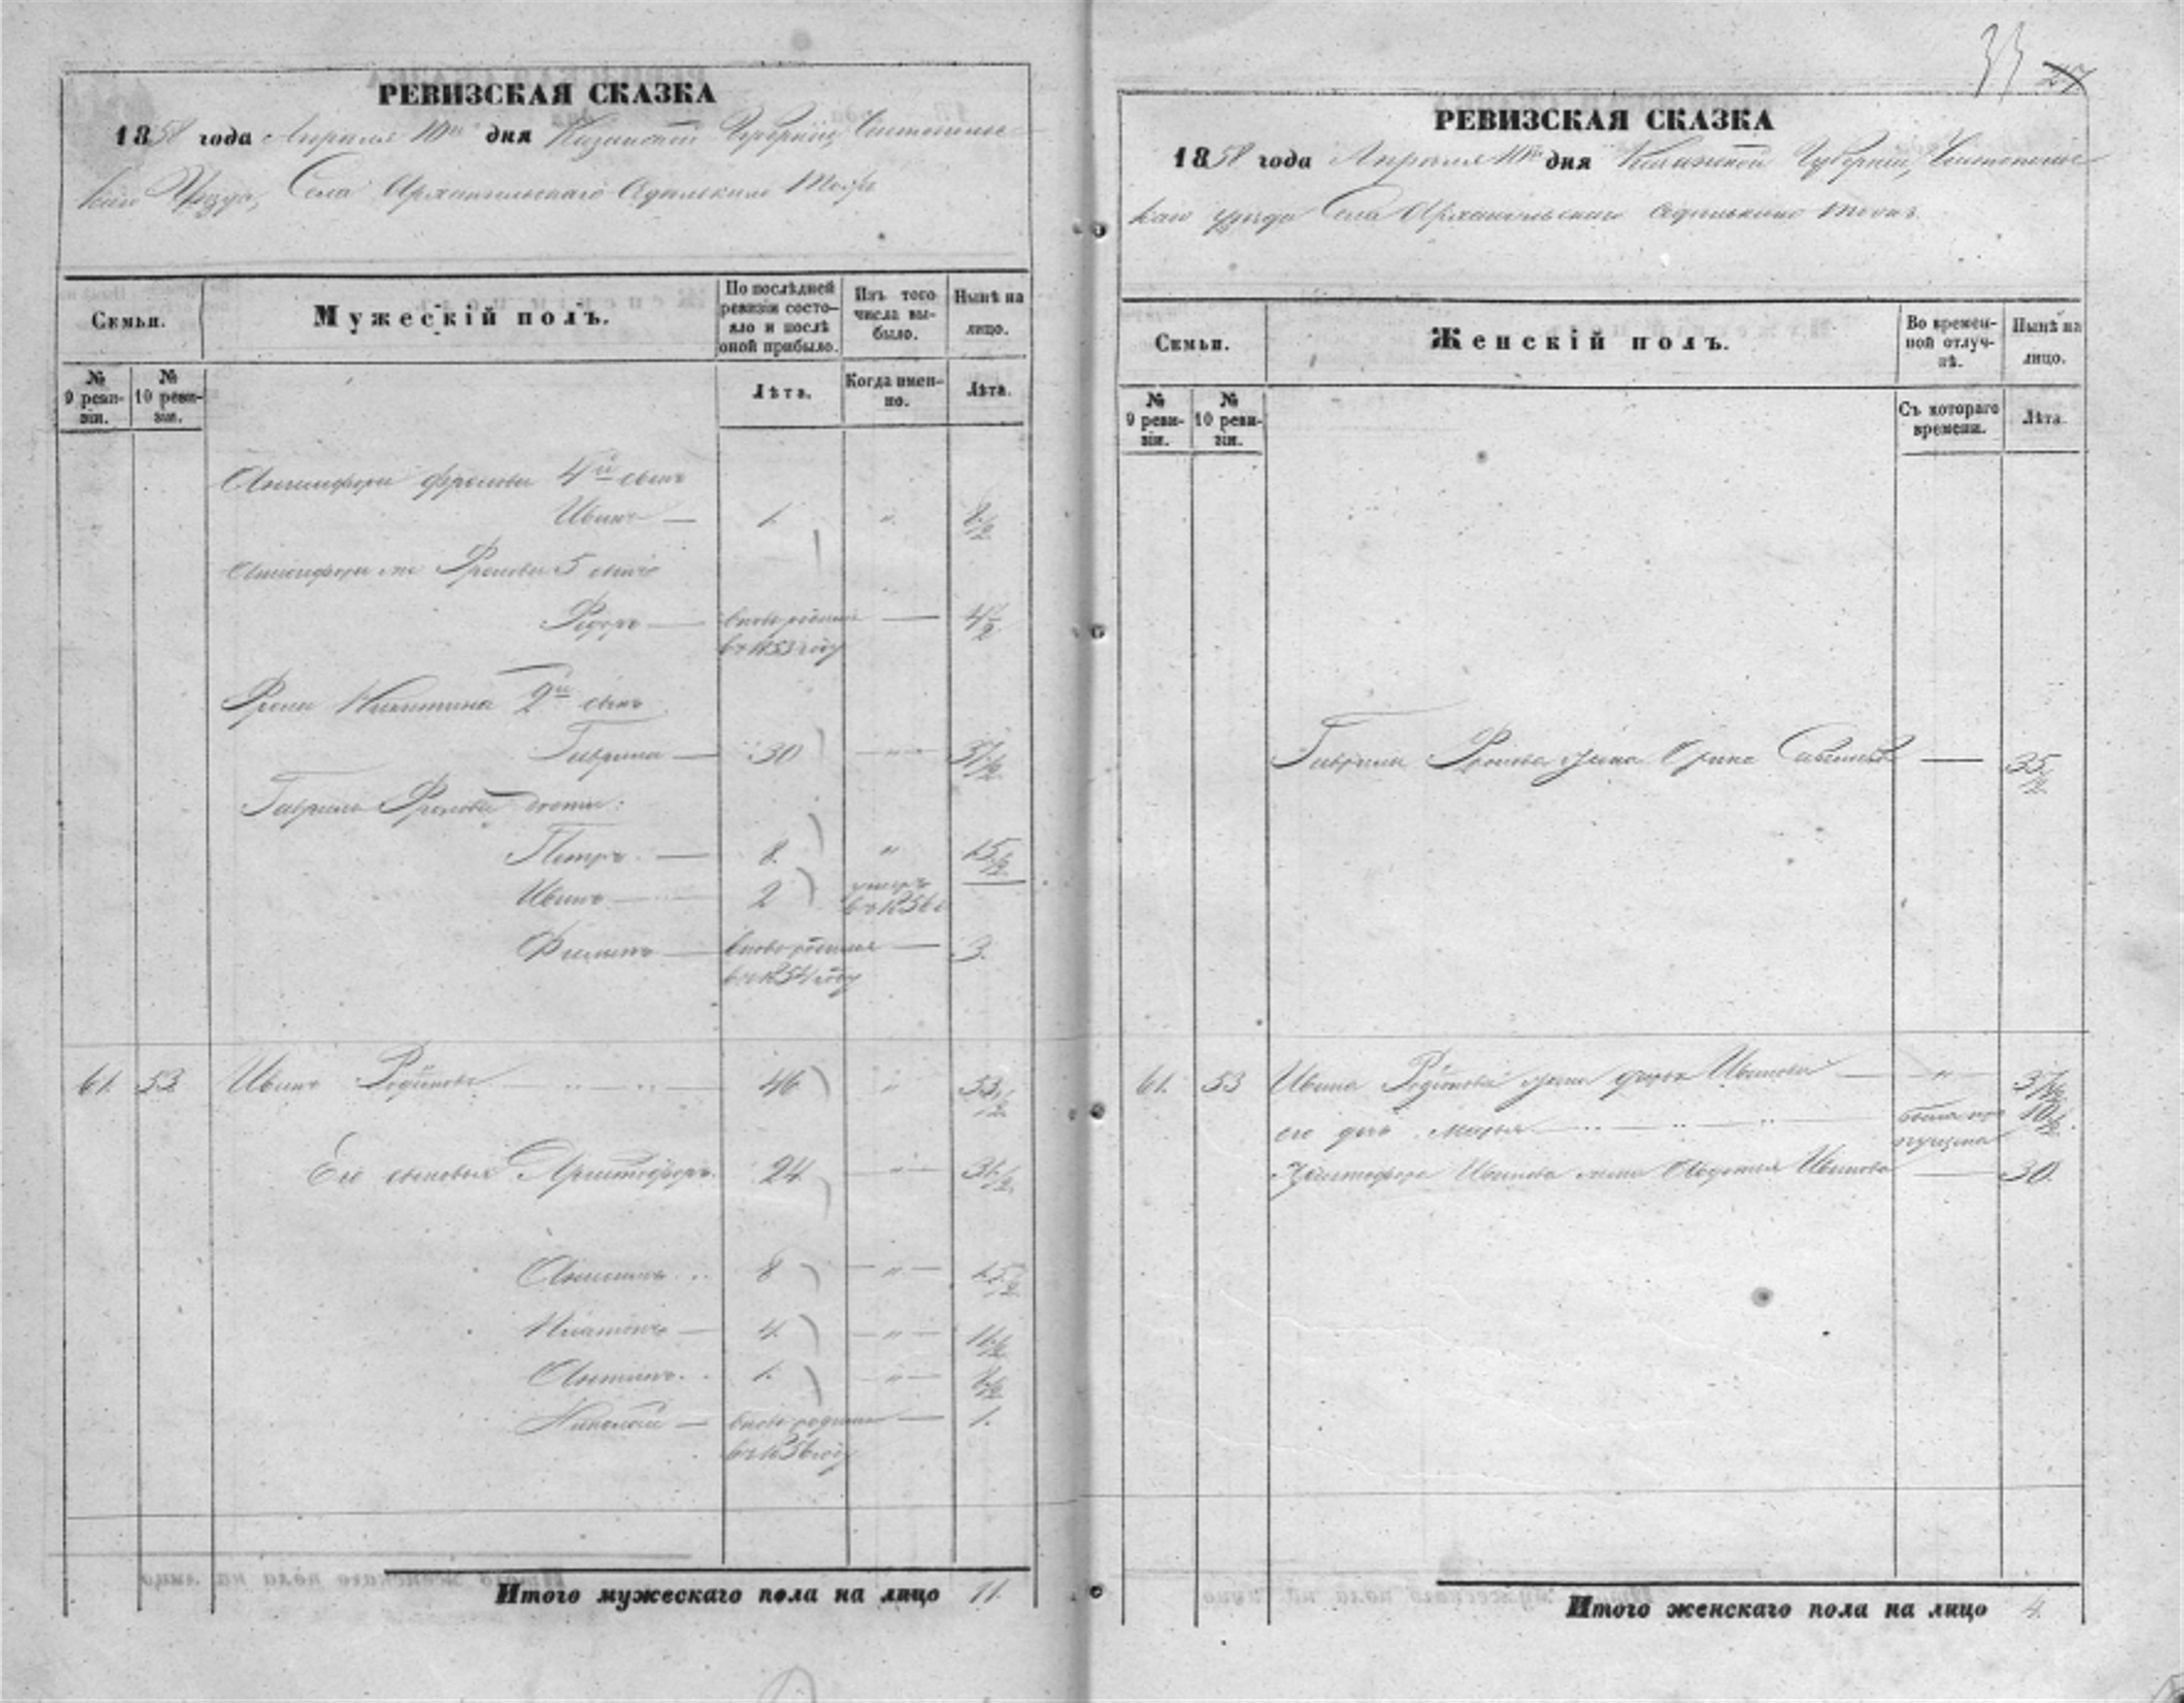 РЕВИЗСКАЯ СКАЗКА
1858 года Апреля дня Казанской Губернии, Чистополь-
скаго Уезда, Села Архангельскаго
Семьи.
Мужескій полъ.
По послѣдней ревизіи состояло и послѣ оной прибыло.
Изъ того числа выбыло.
Нынѣ на лицо.
№ 9 ревизіи.
№ 10 ревизіи.
Лѣта.
Когда именно.
Лѣта.
Фролова 4й сынъ
Иванъ — 1. " 8 1/2
Фролова 5 сынъ
Федоръ — вновь родился — 4 1/2
въ 1853 году
Фрола Никитина 2й сынъ
Гаврила — 30 — " — 37 1/2
Гаврилы Фролова дети:
Петръ — 8. " 15 1/2
Иванъ — 2 умеръ въ 1856
Филипъ — вновь родился — 3.
въ 1854 году
61. 53 Иванъ Родіоновъ — 46 " 53 1/2
Его сыновья Христофоръ 24 — " — 31 1/2
8 — " — 15 1/2
Платонъ — 4. — " — 11 1/2
Антипъ 1. — " — 8 1/2
Николай — вновь родился — 1.
въ 1856 году
Итого мужескаго пола на лицо 11.
РЕВИЗСКАЯ СКАЗКА
1858 года Апреля дня Казанской Губернии, Чистополь-
скаго уезда Села Архангельскаго
Семьи.
Женскій полъ.
Во временной отлучкѣ.
Нынѣ на лицо.
№ 9 ревизіи.
№ 10 ревизіи.
Съ котораго времени.
Лѣта.
Гаврилы Фролова жена — 35 1/2
61. 53 Ивана Родіонова жена Иванова — " — 37 1/2
его дочь Марья — была пропущена 10 1/2
Христофора Иванова жена Авдотья Иванова — 30.
Итого женскаго пола на лицо 4.